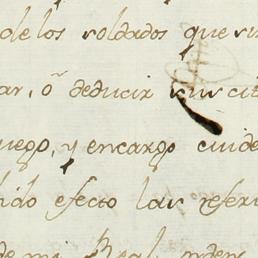 de los soldados que
ar, o deducir sus
uego, y encargo cuide
hido efecto las referi
de mi Real orden